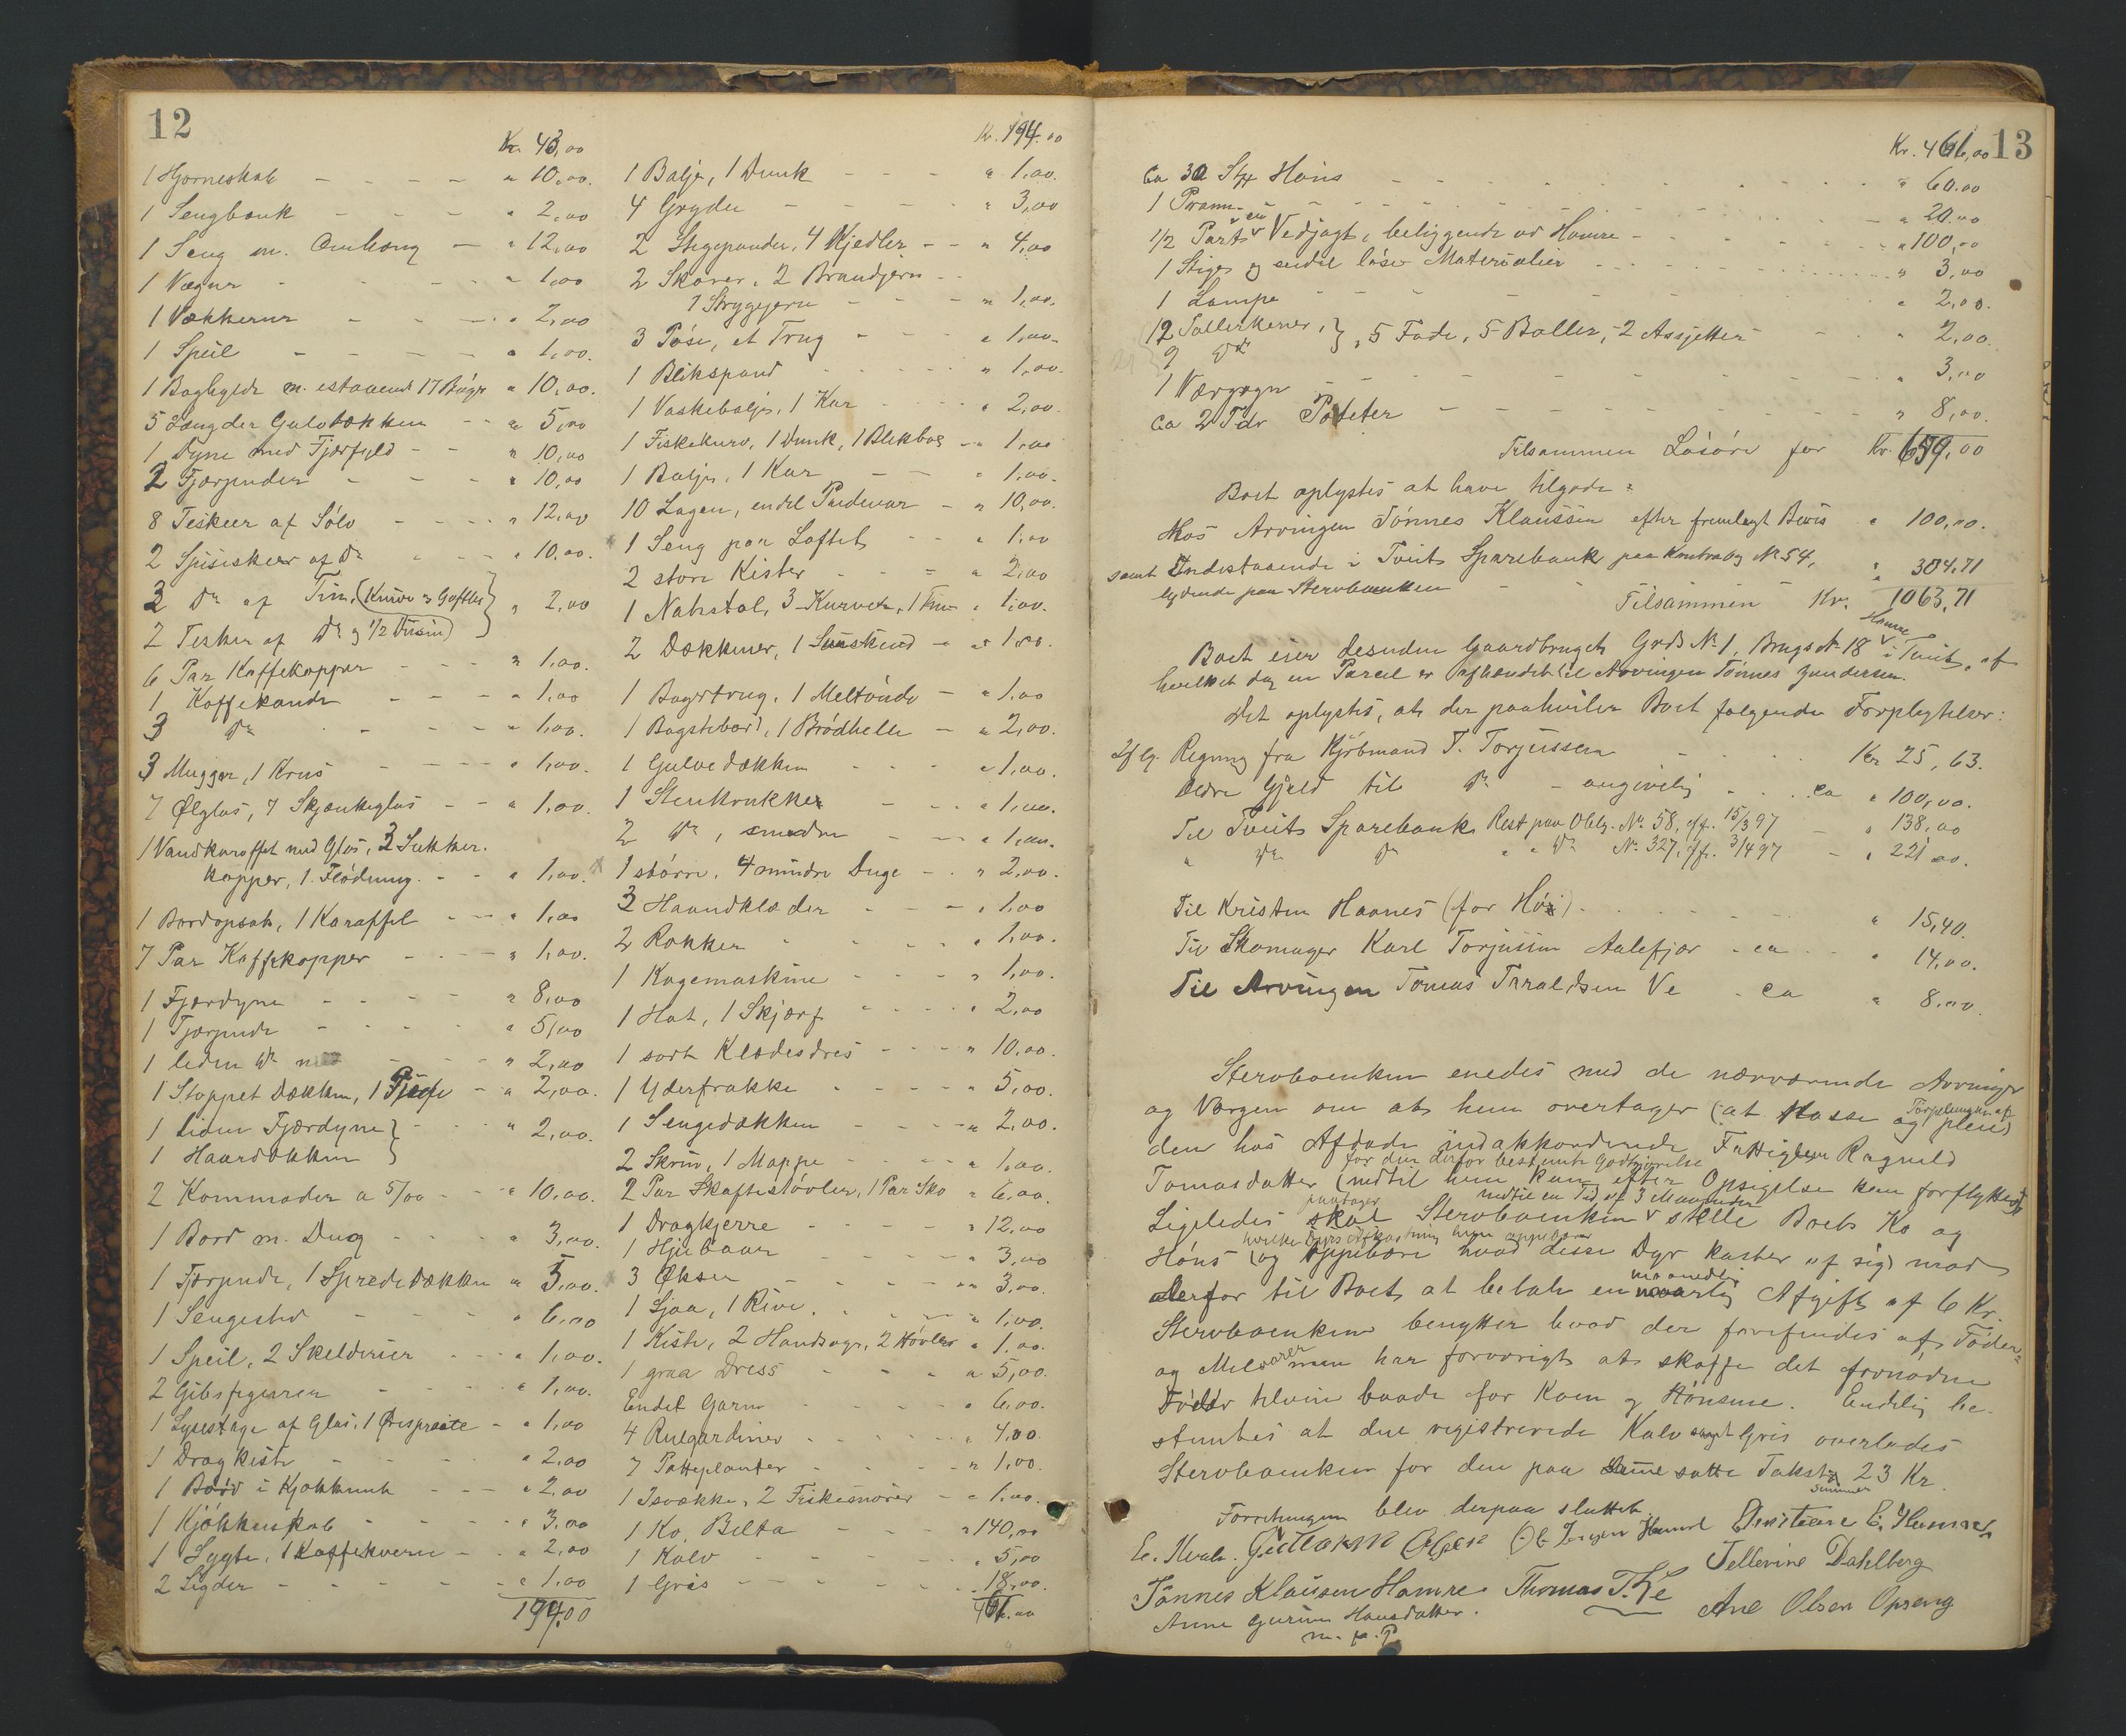 12
Kr. 43,00
1 Hjørneskab - - - - " 10,00.
1 Sengbænk - - - " 2,00
1 Seng m. Omhæng - " 12,00
1 Vægur - - - " 1,00
1 Vækkerur - - - " 2,00
1 Speil - - - - " 1,00.
1 Boghylde m. estaaende 17 Bøger " 10,00.
5 Længder Gulvtækken - - " 5,00
1 Dyne med Fjærfyld - - " 10,00
2 Fjærpuder - - - " 10,00
8 Teskeer af Sølv - - - " 12,00
2 Spiseskeer af Do - - " 10.00.
3 Do af Tin, (Knive & Gafler
2 Teskeer af Do og 1/2 Dusin) } " 2,00
6 Par Kaffekopper - - - " 1,00.
1 Kaffekande - - - " 1,00
3 Do - - - - " 1,00.
3 Mugger, 1 Krus - - - - " 1,00.
7 Ølglas, 7 Skjænkeglas - - " 1,00.
1 Vandkaraffel med Glas, 3 Sukker-
kopper, 1 Flødmug. - - " 1,00.
1 Bordopsats, 1 Karaffel - - " 1,00
7 Par Kaffekopper - - - " 1,00.
1 Fjærdyne - - - - " 8,00
1 Fjærpude - - - - " 5,00
1 liden Do - - - " 2,00
1 Stoppet Dækken, 1 - " 2,00.
1 liden Fjærdyne }
1 Haardækken } - - - " 2,00.
2 Kommoder a 5/00 - - - " 10,00.
1 Bord m. Dug - - - - " 3,00.
1 Fjærpude, 1 Sprededækken " 5,00.
1 Sengested - - - - " 6,00
1 Speil, 2 Skelderier - - - " 1,00.
2 Gibsfigurer - - - " 1,00.
1 Lysestage af Glas, 1 - " 1,00
1 Dragkiste - - - - " 2,00
1 Bord i Kjøkkenet - - - " 2,00
1 Kjøkkenskab - - - - " 3,00
1 Lygte, 1 Kaffekvern - - " 2,00
2 Ligder - - - - - " 1,00
194.00
Kr. 194.00
1 Balje, 1 Dunk - - - " 1,00.
4 Gryder - - - - " 3,00
2 Stegepander, 4 Kjedler - - " 4,00
2 Skarer, 2 Brandjern - -
1 Strygejern - - - " 1,00.
3 Pøse, et Trug - - - " 1,00.
1 Blikspand - - - - " 1,00.
1 Vaskebalje, 1 Kar - - - " 2,00.
1 Fiskekurv, 1 Dunk, 1 Blikbox - " 1,00
1 Balje, 1 Kar - - - " 1,00.
10 Lagen, endel Pudevar - " 10,00.
1 Seng paa Loftet - - " 1,00
2 store Kister - - - " 2,00
1 Natstol, 3 Kurver, 1 - " 1,00.
2 Dækkener, 1 - " 1,00.
1 Bagetrug, 1 Meltønde - " 1,00
1 Bagstebord, 1 Brødhelle - " 2,00.
1 Gulvedækken - - - " 1,00.
1 Stenkrukker - - - " 1,00.
2 Do, smadre - - " 1,00.
1 større, 4 mindre Duge - - " 2,00.
3 Haandklæder - - - " 1,00
2 Rokker - - - - " 1,00.
1 Kagemaskine - - - " 1,00.
1 Hat, 1 Skjærf - - - - " 2,00
1 sort Klædesdres - - - " 10,00.
1 Yderfrakke - - - - " 5,00.
1 Sengedækken - - - - " 2,00.
2 Skrin, 1 Mappe - - - " 1,00.
2 Par Skaftestøvler, 1 Par Sko " 6,00.
1 Dragkjerre - - - - " 12,00
1 Hjulbaar - - - - " 3,00
3 Økser - - - - - " 3,00.
1 Ljaa, 1 Rive. - - - " 1,00.
1 Kiste, 2 Handsage, 2 Høvler " 1,00.
1 graa Dress - - - " 5,00.
Endel Garn - - - - " 6,00.
4 Rulgardiner - - - - " 4,00
7 Potteplanter - - - " 1,00.
1 Isøkke, 2 Fiskesnører - " 1,00.
1 Ko, Belta - - - - " 140,00
1 Kalv - - - - - " 5,00
1 Gris - - - - - " 18,00.
466.00
13
Kr. 466,00
Ca 30 Stk Høns - - - - " 60.00
1 Pram - - - - " 20.00
1/2 Part i en Vedjagt, beliggende ved Hamre - - - " 100,00
1 Stige og endel løse Materialier - - - " 3,00
1 Lampe - - - - " 2,00.
12 Tallerkener, } , 5 Fade, 5 Boller, 2 Assjetter - - " 2,00.
9 Do }
1 - - - - " 3,00
Ca 2 Tdr Poteter - - - - " 8,00.
Tilsammen Løsøre for Kr. 659,00
Boet oplystes at have tilgode:
Hos Arvingen Tønnes Klaussen efter fremlagt Bevis " 100,00.
samt Indestaaende i Tveits Sparebank paa Kontrabog No 54,
lydende paa Stervboenken - - " 304,71
Tilsammen Kr. 1063,71
Boet eier desuden Gaardbruget Gards No 1, Brugs No 18 Hamre i Tveit, af
hvilket dog en Parcel er afhændet til Arvingen Tønnes Gundersen.
Det oplystes, at der paahviler Boet følgende Forpligtelser:
Ifølg. Regning fra Kjøbmand T. Torjussen - - - Kr 25,63.
Ældre Gjæld til Do - angivelig - - ca " 100,00.
Til Tveits Sparebank Rest paa Oblg. No 58, aff. 15/3 97 - " 138,00
" Do Do " " Do No 327, aff. 3/4 97 - " 221 00.
Til Kristen Haanes (for Høi) - - - - " 15,40.
Til Skomager Karl Torjussen Aalefjær - ca - - " 14,00.
Til Arvingen Tomas Taraldsen Ve - ca " 8.00.
Stervboenken enedes med de nærværende Arvinger
og Værgen om at hun overtager (at passe og pleie) Forpleiningen af
den hos Afdøde indakkorderede Fattiglem Ragnild
for den derfor bestemte Godtgjørelse
Tomasdatter (indtil hun kan efter Opsigelse kan forflyttes)
paatager indtil en Tid af 3 Maaneder
Ligeledes skal Stervboenken stelle Boets Ko og
hvilke Dyrs Afkastning hun oppebærer
Høns (og oppebære hvad disse Dyr kaster af sig) mod
derfor til Boet at betale en maanedlig Afgift af 6 Kr.
Stervboenken benytter hvad der forefindes af Foder-
og Melvarer men har forøvrigt at skaffe det fornødne
Foder tilveie baade for Koen og Hønsene. Endelig be-
stemtes at den registrerede Kalv samt Gris overlades
Stervboenken for den paa samme satte Takst 23 Kr.
Summer
Forretningen blev derpaa sluttet.
E. Kvale. Ole Jørgen Hamre
Tellerine Dahlberg
Tønnes Klausen Hamre Thomas T. Ve
Ane Olsen Opseng
Anne Gurine Hansdatter.
m. p. P.